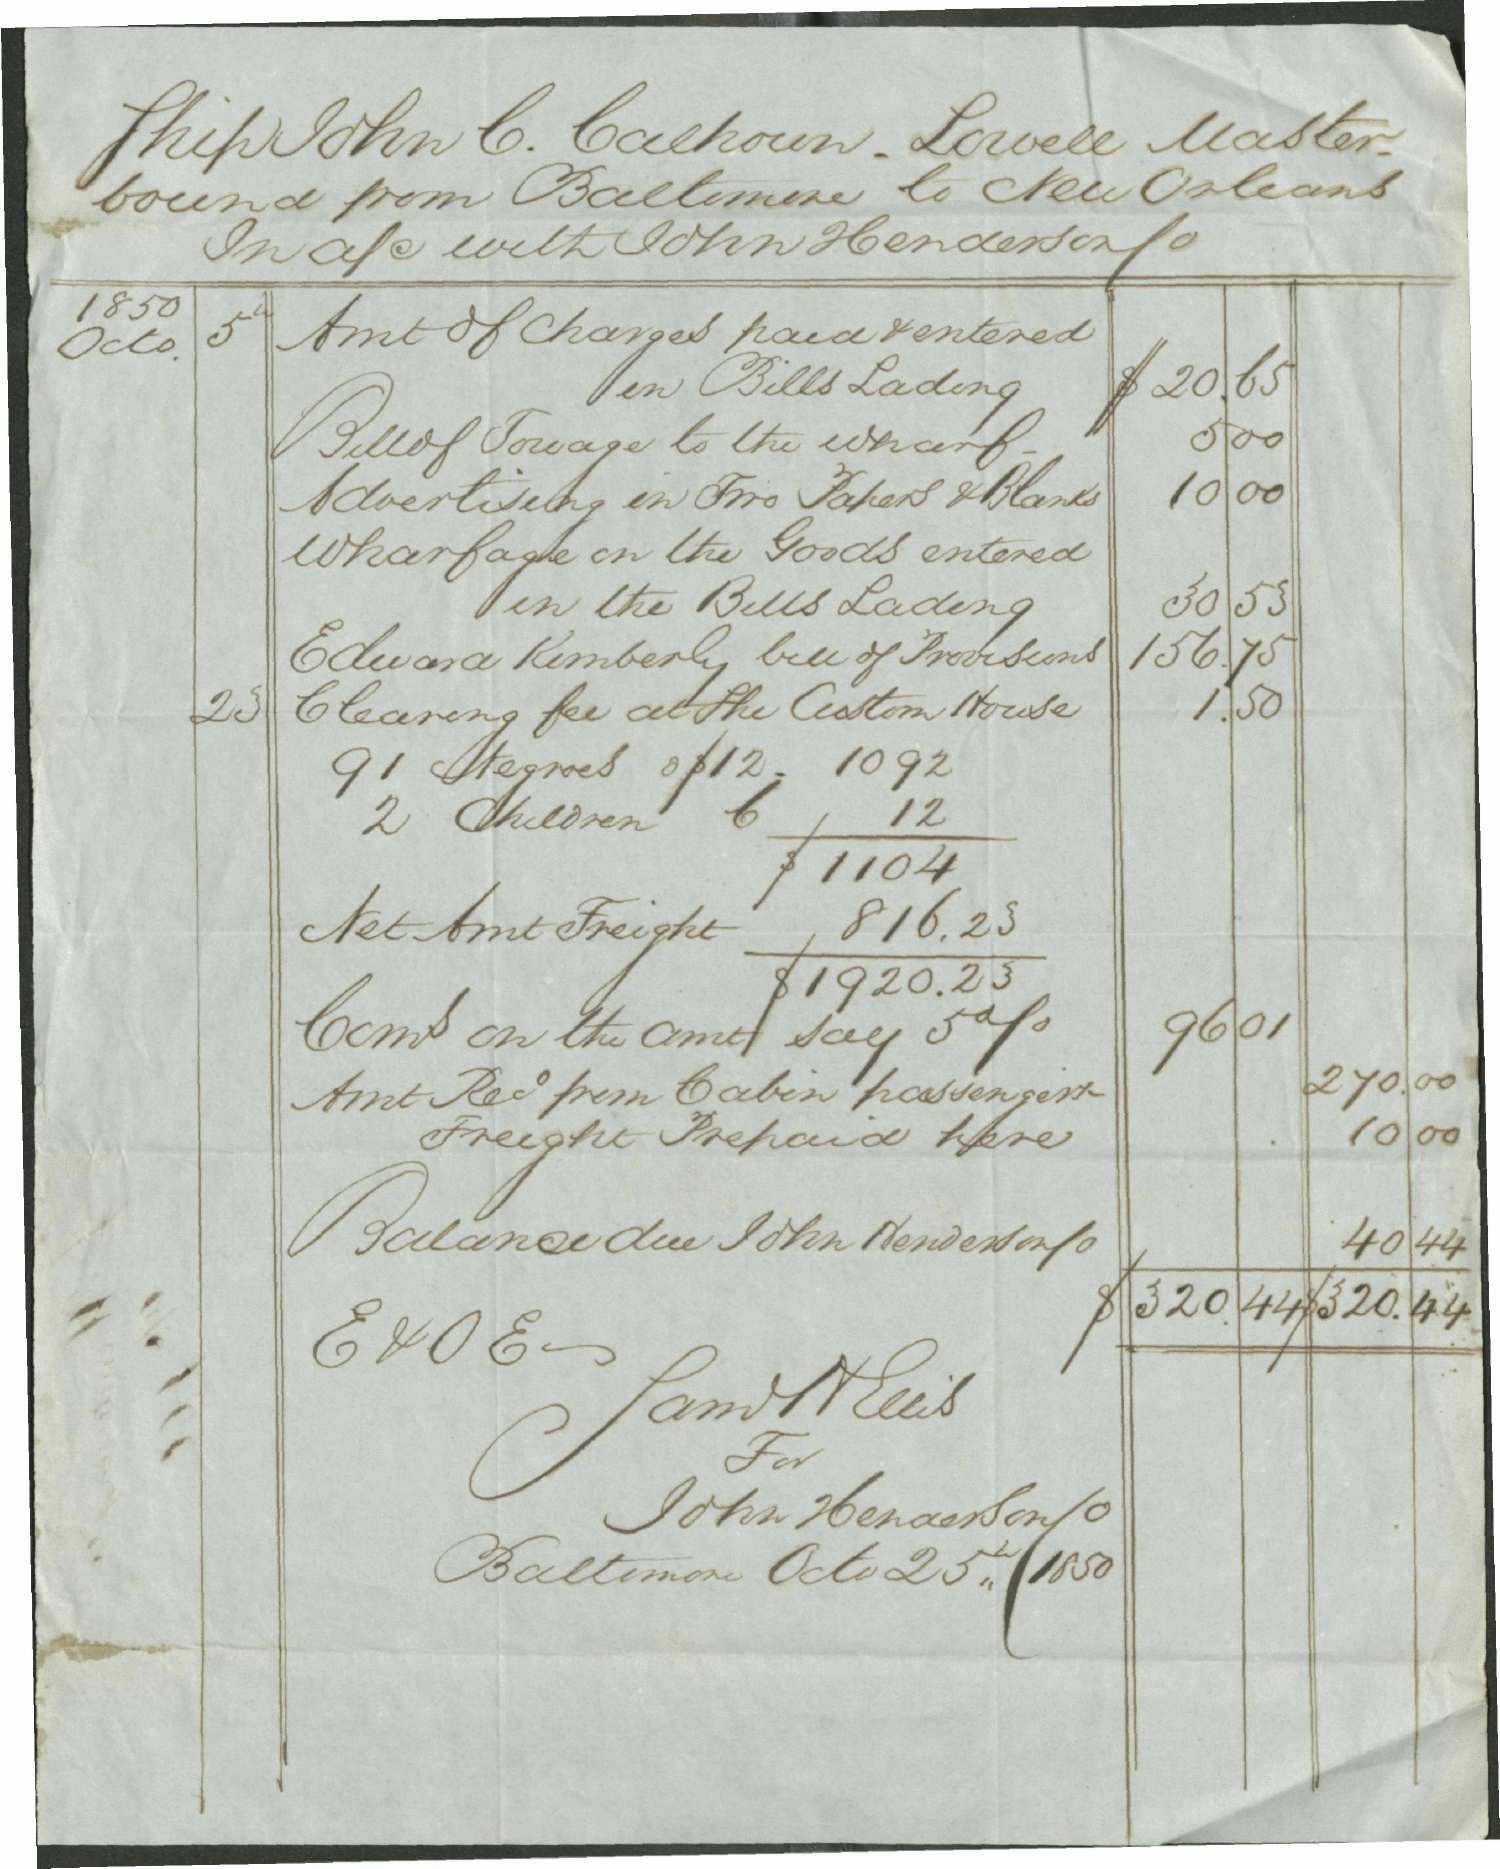 Ship John C. Calhoun - Lowell Master -
bound from Baltimore to New Orleans
In a/c with John Henderson/o
1850
Octo. 5th Amt of Charges paid & entered
in Bills Lading $ 20.65
Bill of Towage to the wharf - 5 00
Advertising in Two Papers & Blanks 10 00
Wharfage on the Goods entered
in the Bills Lading 30 53
Edward Kimberly bill of Provisions 156.75
23 Clearing fee at the Custom House 1.50
91 Negroes o $12 - 1092
2 Children 6 12
$ 1104
Net Amt Freight 816.23
$ 1920.23
Coms on the amt say 5 o/o 96 01
Amt Recd from Cabin passengers - 270.00
Freight Prepaid here 10 00
Balance due John Henderson/o 40 44
$ 320.44 $ 320.44
E & O E
Saml H Ellis
For
John Henderson/o
Baltimore Octo 25th / 1850